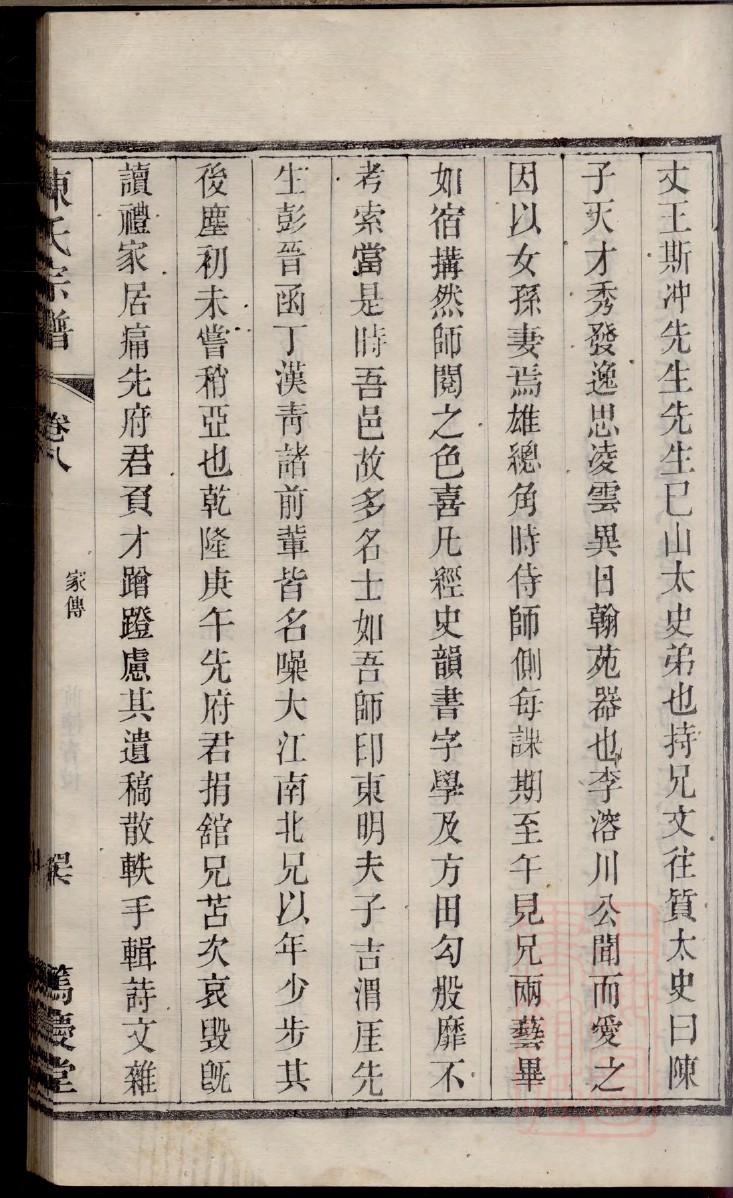 丈王斯冲先生先生已山太史弟也持兄文往質太史曰陳
子天才秀發逸思凌雲異日翰苑器也李溶川公聞而愛之
因以女孫妻焉雄總角時侍師側每課期至午見兄兩藝畢
如宿搆然師閱之色喜凡經史韻書字學及方田勾股靡不
考索當是時吾邑故多名士如吾師印東明夫子吉渭厓先
生彭晉函丁漢靑諸前輩皆名噪大江南北兄以年少步其
後塵初未嘗稍亞也乾隆庚午先府君捐舘兄苫次哀毀旣
讀禮家居痛先府君負才蹭蹬慮其遺稿散軼手輯詩文雜
陳氏宗譜
卷八
家傳
篤慶堂